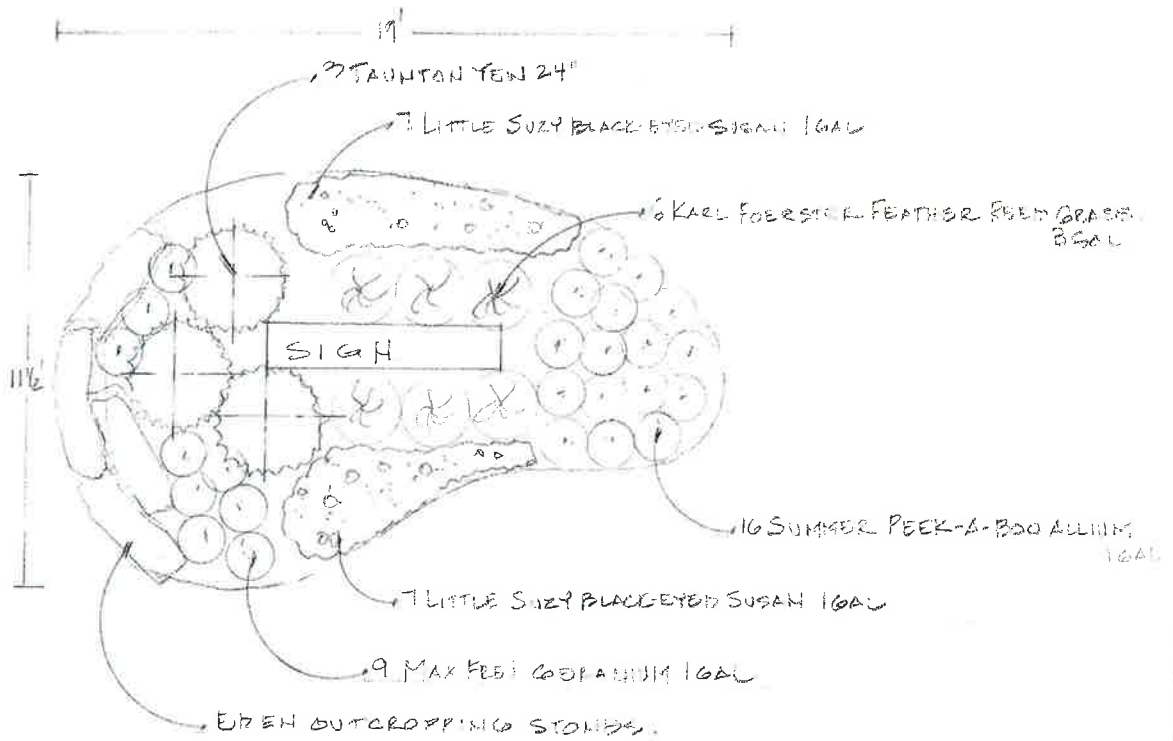 19'
3 TAUNTON YEW 24"
7 LITTLE SUZY BLACK-EYED SUSAN 1GAL
6 KARL FOERSTER FEATHER REED GRASS
3 GAL
11½'
SIGN
16 SUMMER PEEK-A-BOO ALLIUM
1GAL
7 LITTLE SUZY BLACK-EYED SUSAN 1GAL
9 MAX FREI GERANIUM 1GAL
EDEN OUTCROPPING STONES.